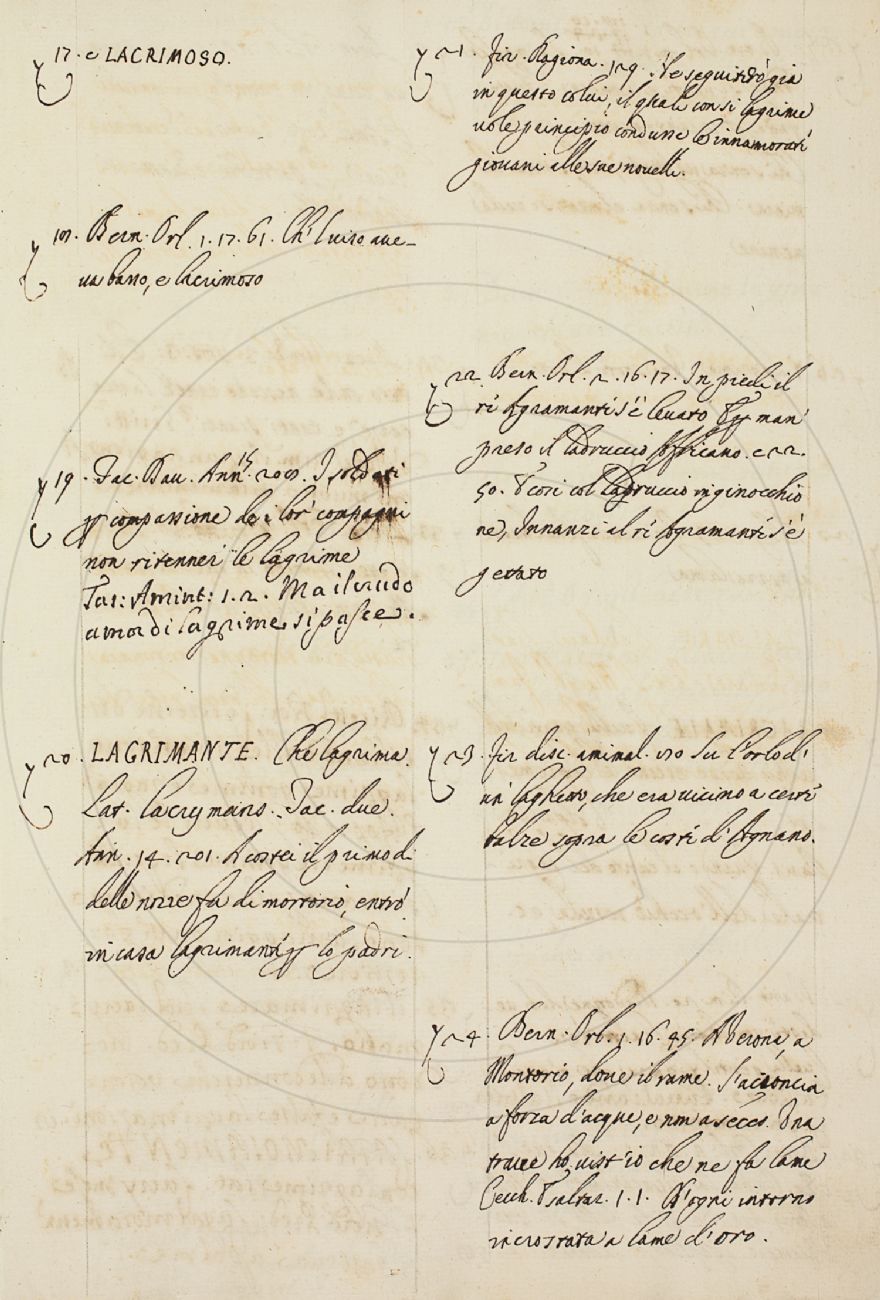 17. e LACRIMOSO.
Bern. Orl. 1. 17. 61. Ch'l viso ave-
va basso, e lacrimoso
19. Tac. Dav. Ann. I soldati
compassione de i lor compagni
non ritenner le lagrime
Tas: Amint: 1. 2. Ma il crudo
amor di lagrime si pasce.
20. LAGRIMANTE. Che lagrima.
Lat. lacrymans. Tac. dav.
Ann. 14. 201. A costei il primo dì
delle nozze fu di mortorio, entrò
in casa lagrimante lo padre.
21. fir. Ragiona. 129. seguitò già
in questo colui, il quale con sì lagrime
vole principio condusse le innamorati
giovani alle sue novelle.
22. Bern. Orl. 2. 16. 17. In piedi il
re Agramante s'è levato man
preso il Africano. e 22.
50. E così col inginocchio
ne, Innanzi al re Agramante s'è
gettato
23. fir disc. animal. Su l'orlo d'
un laghetto, che era vicino a certe
balze sopra le coste d'Agnano.
24. Bern. Orl. 1. 16. 45. A Verona, a
Montorio, dove il rame. S'acconcia
a forza d'acque, e non a secco. Una
trave ho vist'io che ne fa lame
Cecch. Esaltaz. 1. 1. D'ogni intorno
incrostata a lame d'oro.